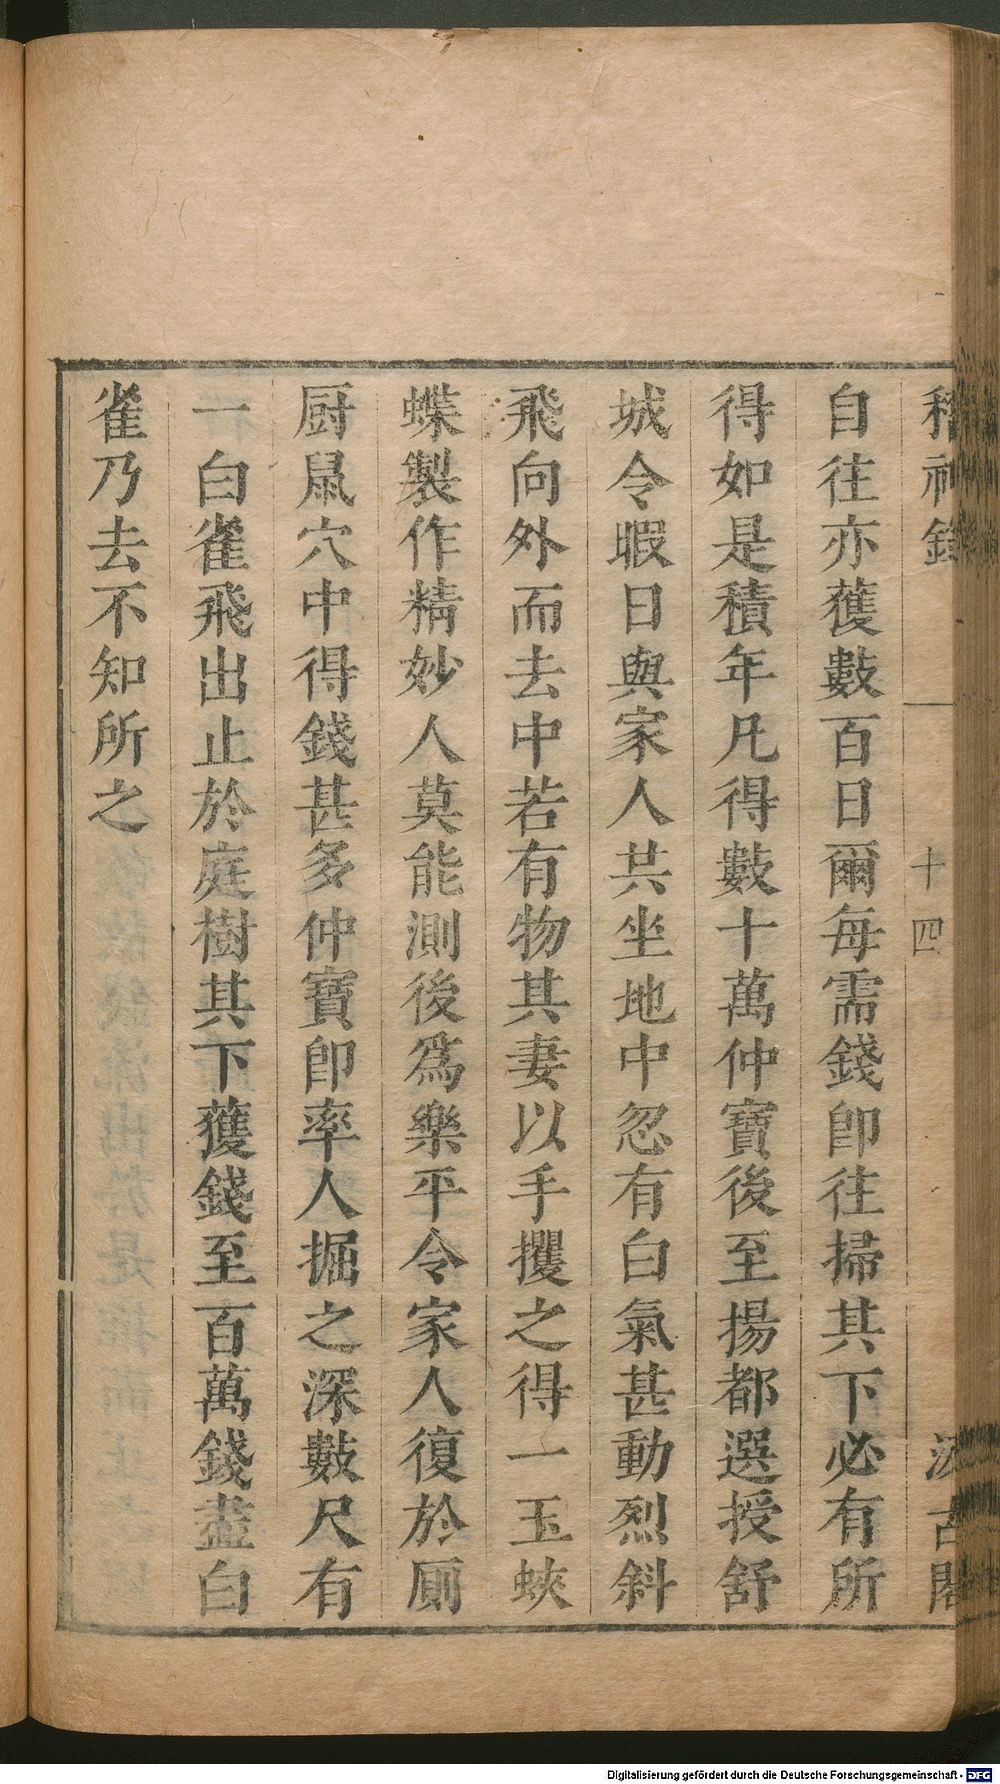 稽神錄
十四
汲古閣
自往亦獲數百日爾每需錢卽往掃其下必有所
得如是積年凡得數十萬仲寶後至揚都選授舒
城令暇日與家人共坐地中忽有白氣甚動烈斜
飛向外而去中若有物其妻以手攫之得一玉蛺
蝶製作精妙人莫能測後爲樂平令家人復於厠
厨鼠穴中得錢甚多仲寶卽率人掘之深數尺有
一白雀飛出止於庭樹其下獲錢至百萬錢盡白
雀乃去不知所之
Digitalisierung gefördert durch die Deutsche Forschungsgemeinschaft - DFG